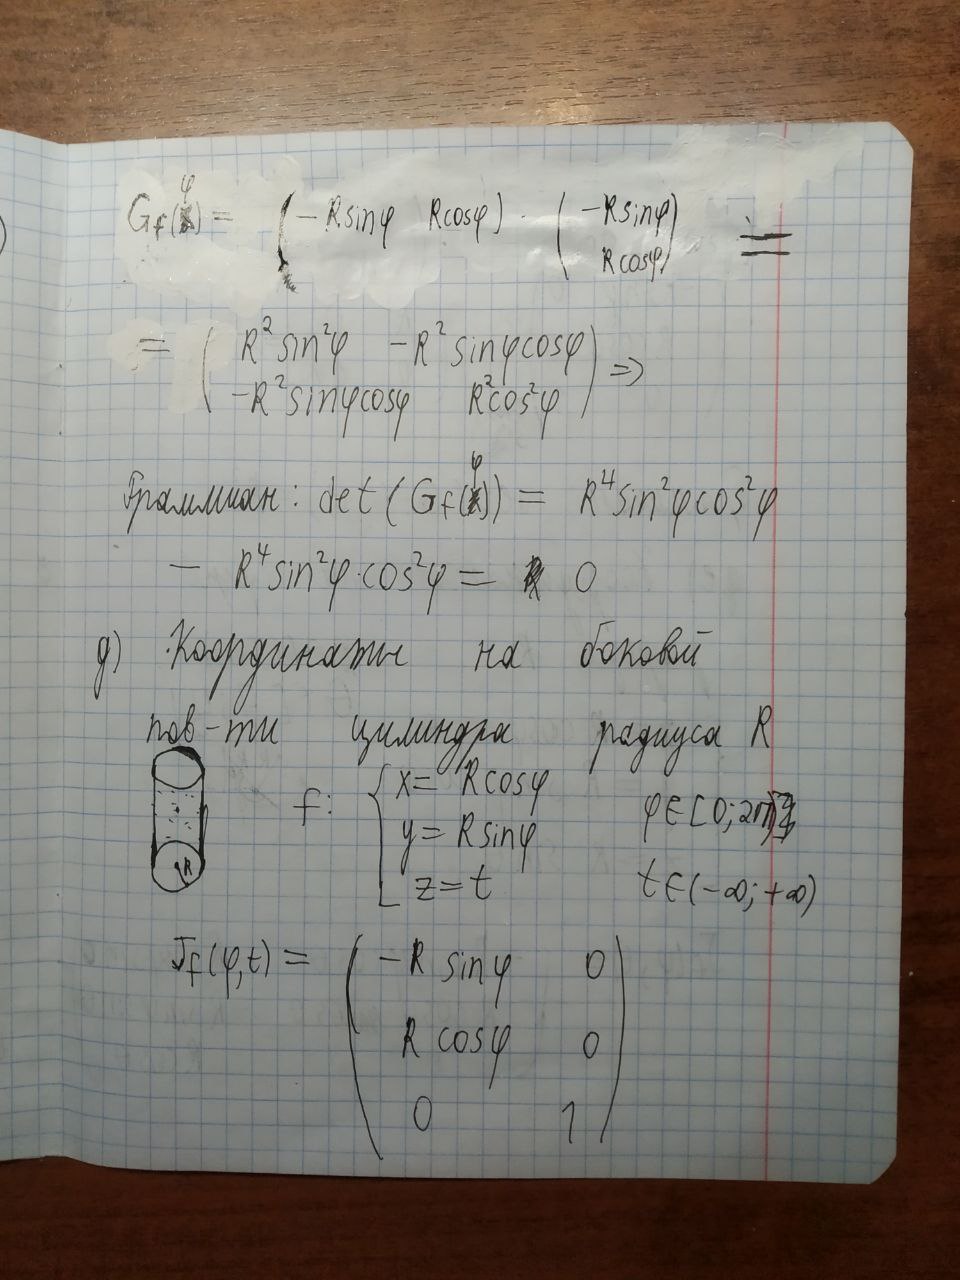 G_f(φ) = (-R sinφ   R cosφ) · (-R sinφ
R cosφ) =
= (R² sin²φ   -R² sinφ cosφ
-R² sinφ cosφ   R² cos²φ) ⇒
Граммиан: det(G_f(φ)) = R⁴ sin²φ cos²φ
- R⁴ sin²φ · cos²φ = 0
д) Координаты на боковой
пов-ти цилиндра радиуса R
R
f: { x = R cosφ
y = R sinφ   φ ∈ [0; 2π)
z = t   t ∈ (-∞; +∞)
J_f(φ,t) = (-R sinφ   0
R cosφ   0
0   1)